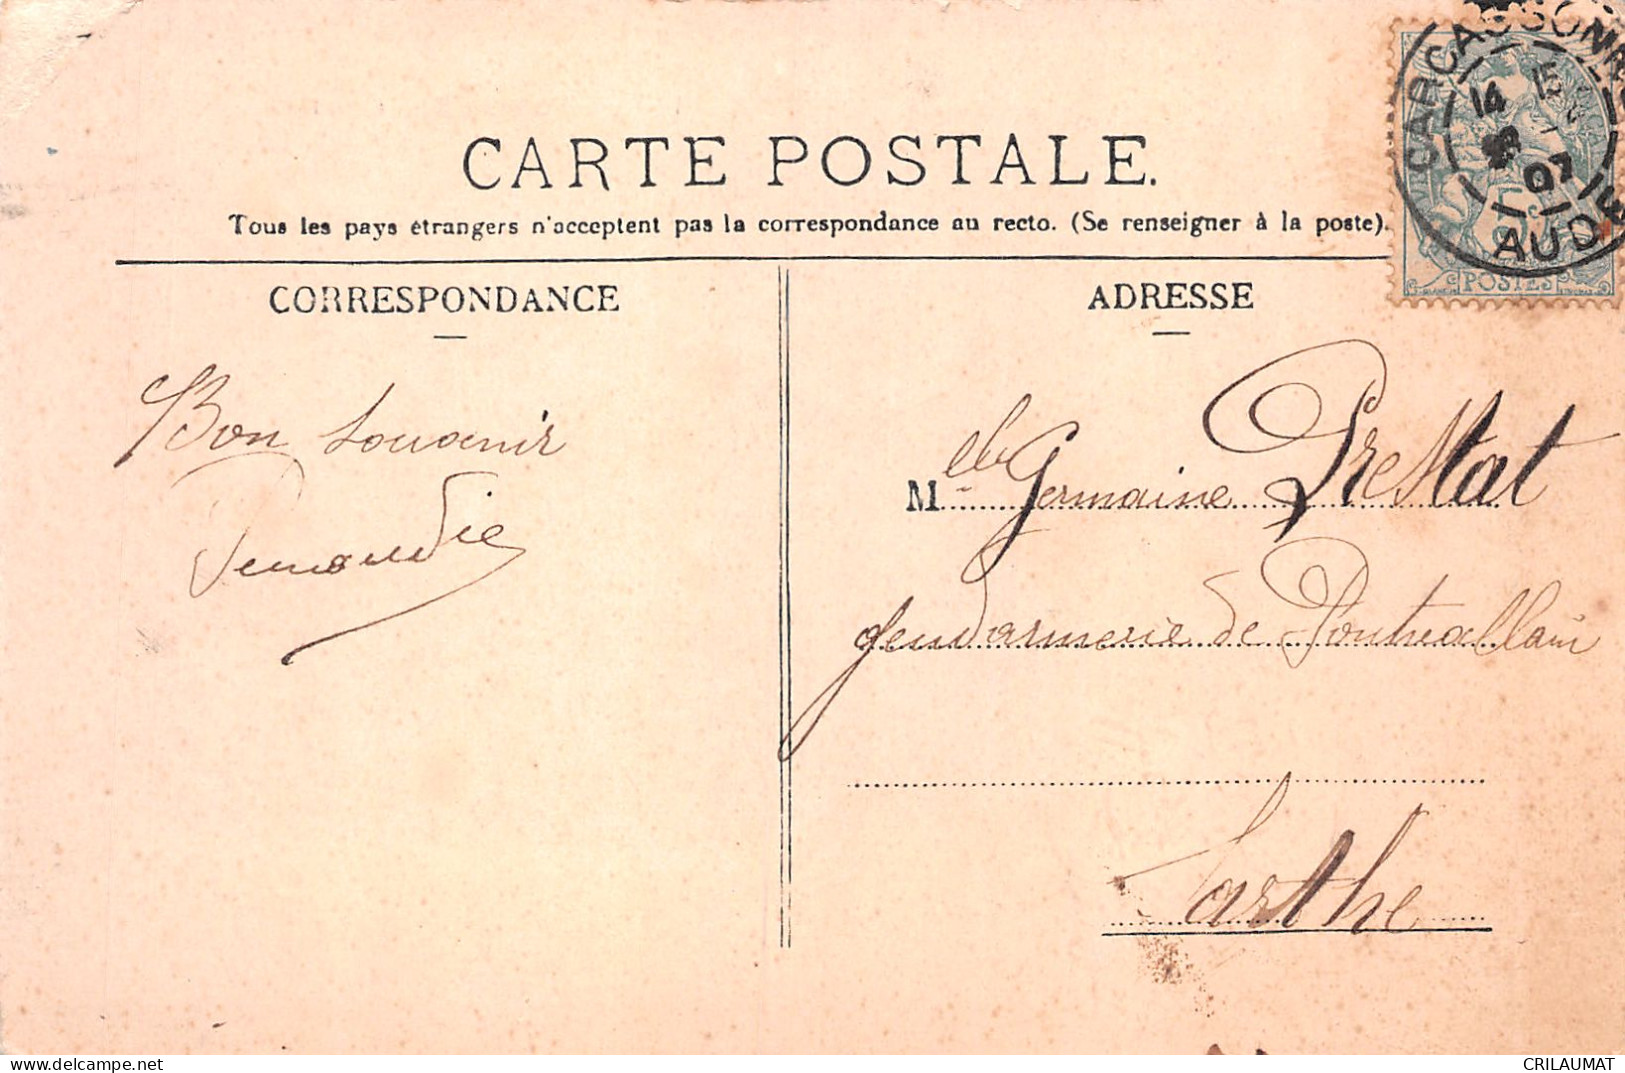 CARTE POSTALE.
Tous les pays étrangers n'acceptent pas la correspondance au recto. (Se renseigner à la poste).
CARCASSONNE
14
07
AUDE
5c
POSTES
CORRESPONDANCE
ADRESSE
Bon souvenir
Mlle Germaine Prestat
gendarmerie de Pontvallain
Sarthe
delcampe.net
CRILAUMAT